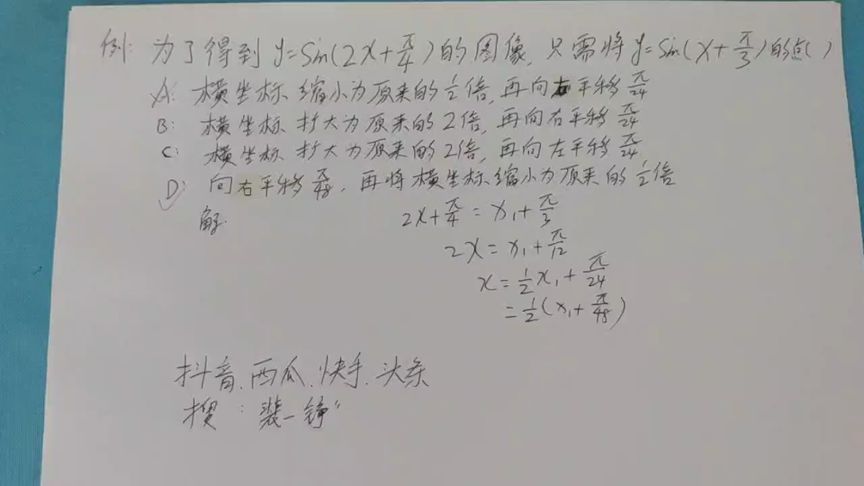 例: 为了得到 y=Sin(2x+π/4)的图像,只需将y=Sin(x+π/3)的点( )
A: 横坐标缩小为原来的1/2倍,再向右平移π/24
B: 横坐标扩大为原来的2倍,再向右平移π/24
C: 横坐标扩大为原来的2倍,再向左平移π/24
D: 向右平移π/48,再将横坐标缩小为原来的1/2倍
解:
2x+π/4=x₁+π/3
2x=x₁+π/12
x=1/2x₁+π/24
=1/2(x₁+π/48)
抖音、西瓜、快手、头条
搜:"裴一铮"